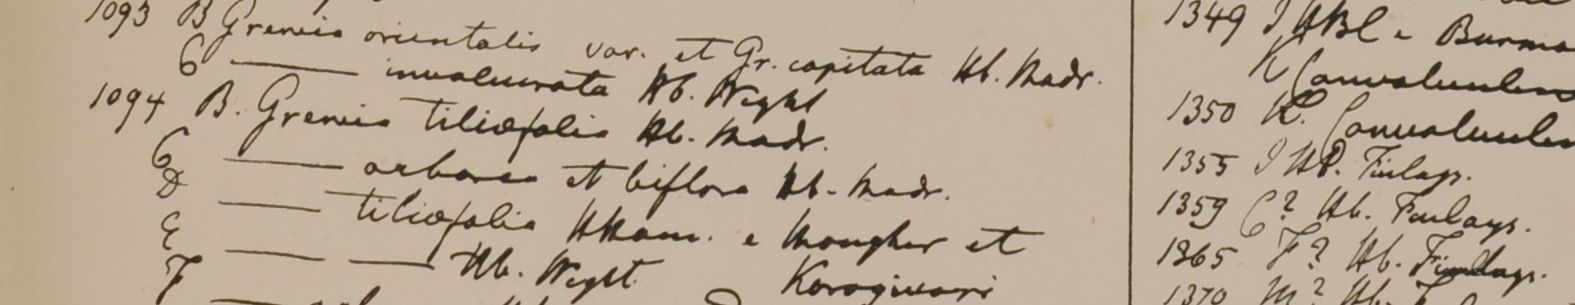 1093 B Grewia orientalis var. et Gr. capitata Hb. Madr.
C —— involucrata Hb. Wight
1094 B. Grewia tiliæfolia Hb. Madr.
C —— arborea et biflora Hb. Madr.
D —— tiliæfolia HHam. e Mougher et Korogiwari
E —— —— Hb. Wight
F
1349 I HBC e Burma
K Convolvulus
1350 K. Convolvulus
1355 I HR. Finlays.
1359 C? Hb. Finlays.
1365 F? Hb. Finlays.
1370 M? Hb.